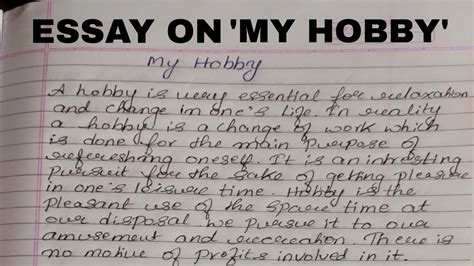 ESSAY ON 'MY HOBBY'
My Hobby
A hobby is very essential for relaxation
and change in one's life. In reality
a hobby is a change of work which
is done for the main purpose of
refreshing oneself. It is an intresting
pursuit for the sake of getting pleasure
in one's leisure time. Hobby is the
pleasant use of the spare time at
our disposal. we pursue it to our
amusement and recreation. There is
no motive of profits involved in it.